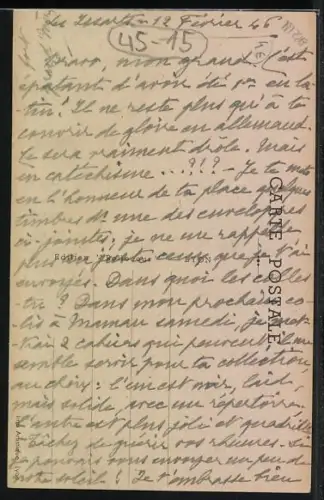 Les Essarts - 12 février 46
45-15
Bravo, mon grand. C'est
épatant d'avoir été 1er en la-
tin ! Il ne reste plus qu'à te
couvrir de gloire en allemand.
Ce sera vraiment drôle. Mais
en catéchisme ...?!? - Je te mets
en l'honneur de ta place quelques
timbres ds une des enveloppes
ci-jointes, je ne me rappelle
plus au juste ceux que je t'ai
envoyés. Dans quoi les colles-
tu ? Dans mon prochain co-
lis à Maman samedi, je met-
trai 2 cahiers qui peuvent il me
semble servir pour ta collection
au choix : l'un est noir, laid,
mais solide, avec un répertoire.
L'autre est plus joli et quadrillé
Tâchez de guérir vos rhumes. Si
je pouvais vous envoyer un peu de
notre soleil ! Je t'embrasse bien
fort
CARTE POSTALE